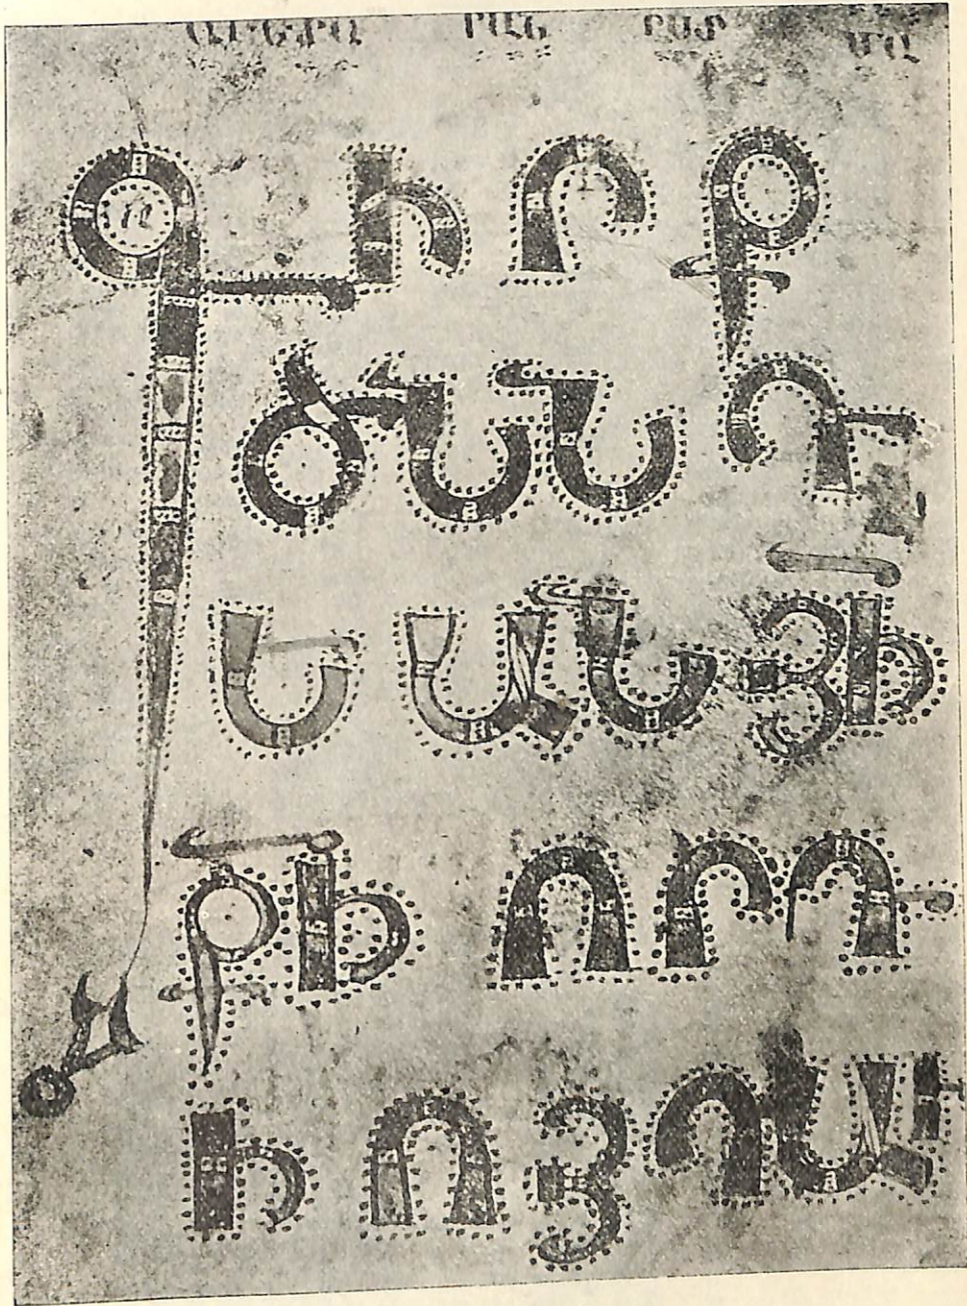 ԳԻՐՔ
ԾՆՆԴ
ԵԱՆ ՅԻ
ՔԻ ՈՐԴ
ԻՈՅ ԴԱ